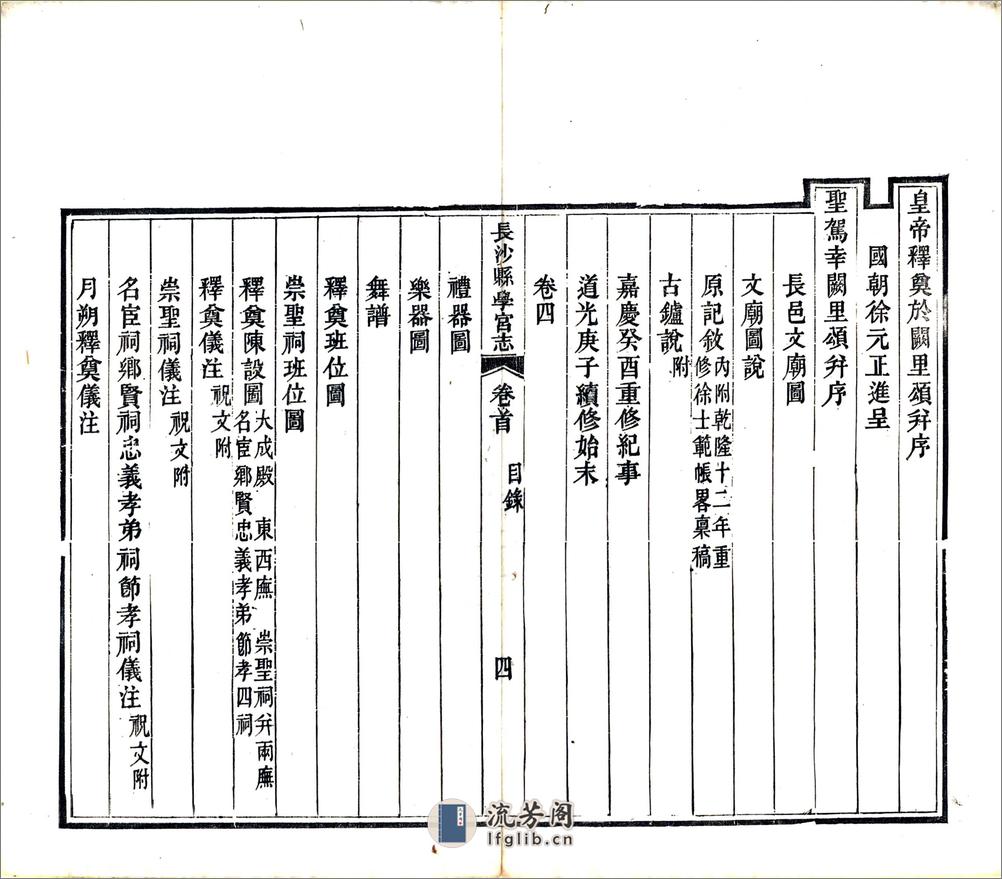 皇帝釋奠於闕里頌幷序
國朝徐元正進呈
聖駕幸闕里頌幷序
長邑文廟圖
文廟圖說
原記敘 內附乾隆十二年重
修徐士範帳畧稟稿
古鑪說 附
嘉慶癸酉重修紀事
道光庚子續修始末
卷四
長沙縣學宮志 卷首 目錄 四
禮器圖
樂器圖
舞譜
釋奠班位圖
崇聖祠班位圖
釋奠陳設圖 大成殿 東西廡 崇聖祠幷兩廡
名宦鄉賢忠義孝弟節孝四祠
釋奠儀注 祝文附
崇聖祠儀注 祝文附
名宦祠鄉賢祠忠義孝弟祠節孝祠儀注 祝文附
月朔釋奠儀注
流芳阁
lfglib.cn